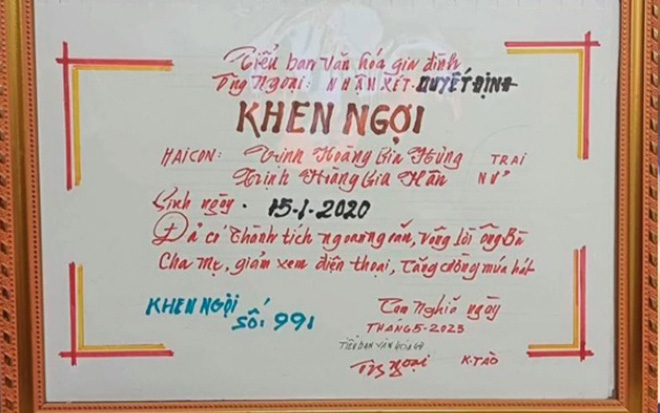 Tiểu ban văn hóa gia đình
Ông Ngoại: NHẬN XÉT - QUYẾT ĐỊNH
KHEN NGỢI
HAI CON: Trịnh Hoàng Gia Hưng TRAI
Trịnh Hoàng Gia Hân NỮ
Sinh ngày. 15-1-2020
Đã có thành tích ngoan ngoãn, vâng lời Ông Bà
Cha Mẹ, giảm xem điện thoại, tăng cường múa hát
KHEN NGỢI
SỐ: 991
ngày
THÁNG 5-2023
TIỂU BAN VĂN HÓA GĐ
Ông ngoại K.TÀO